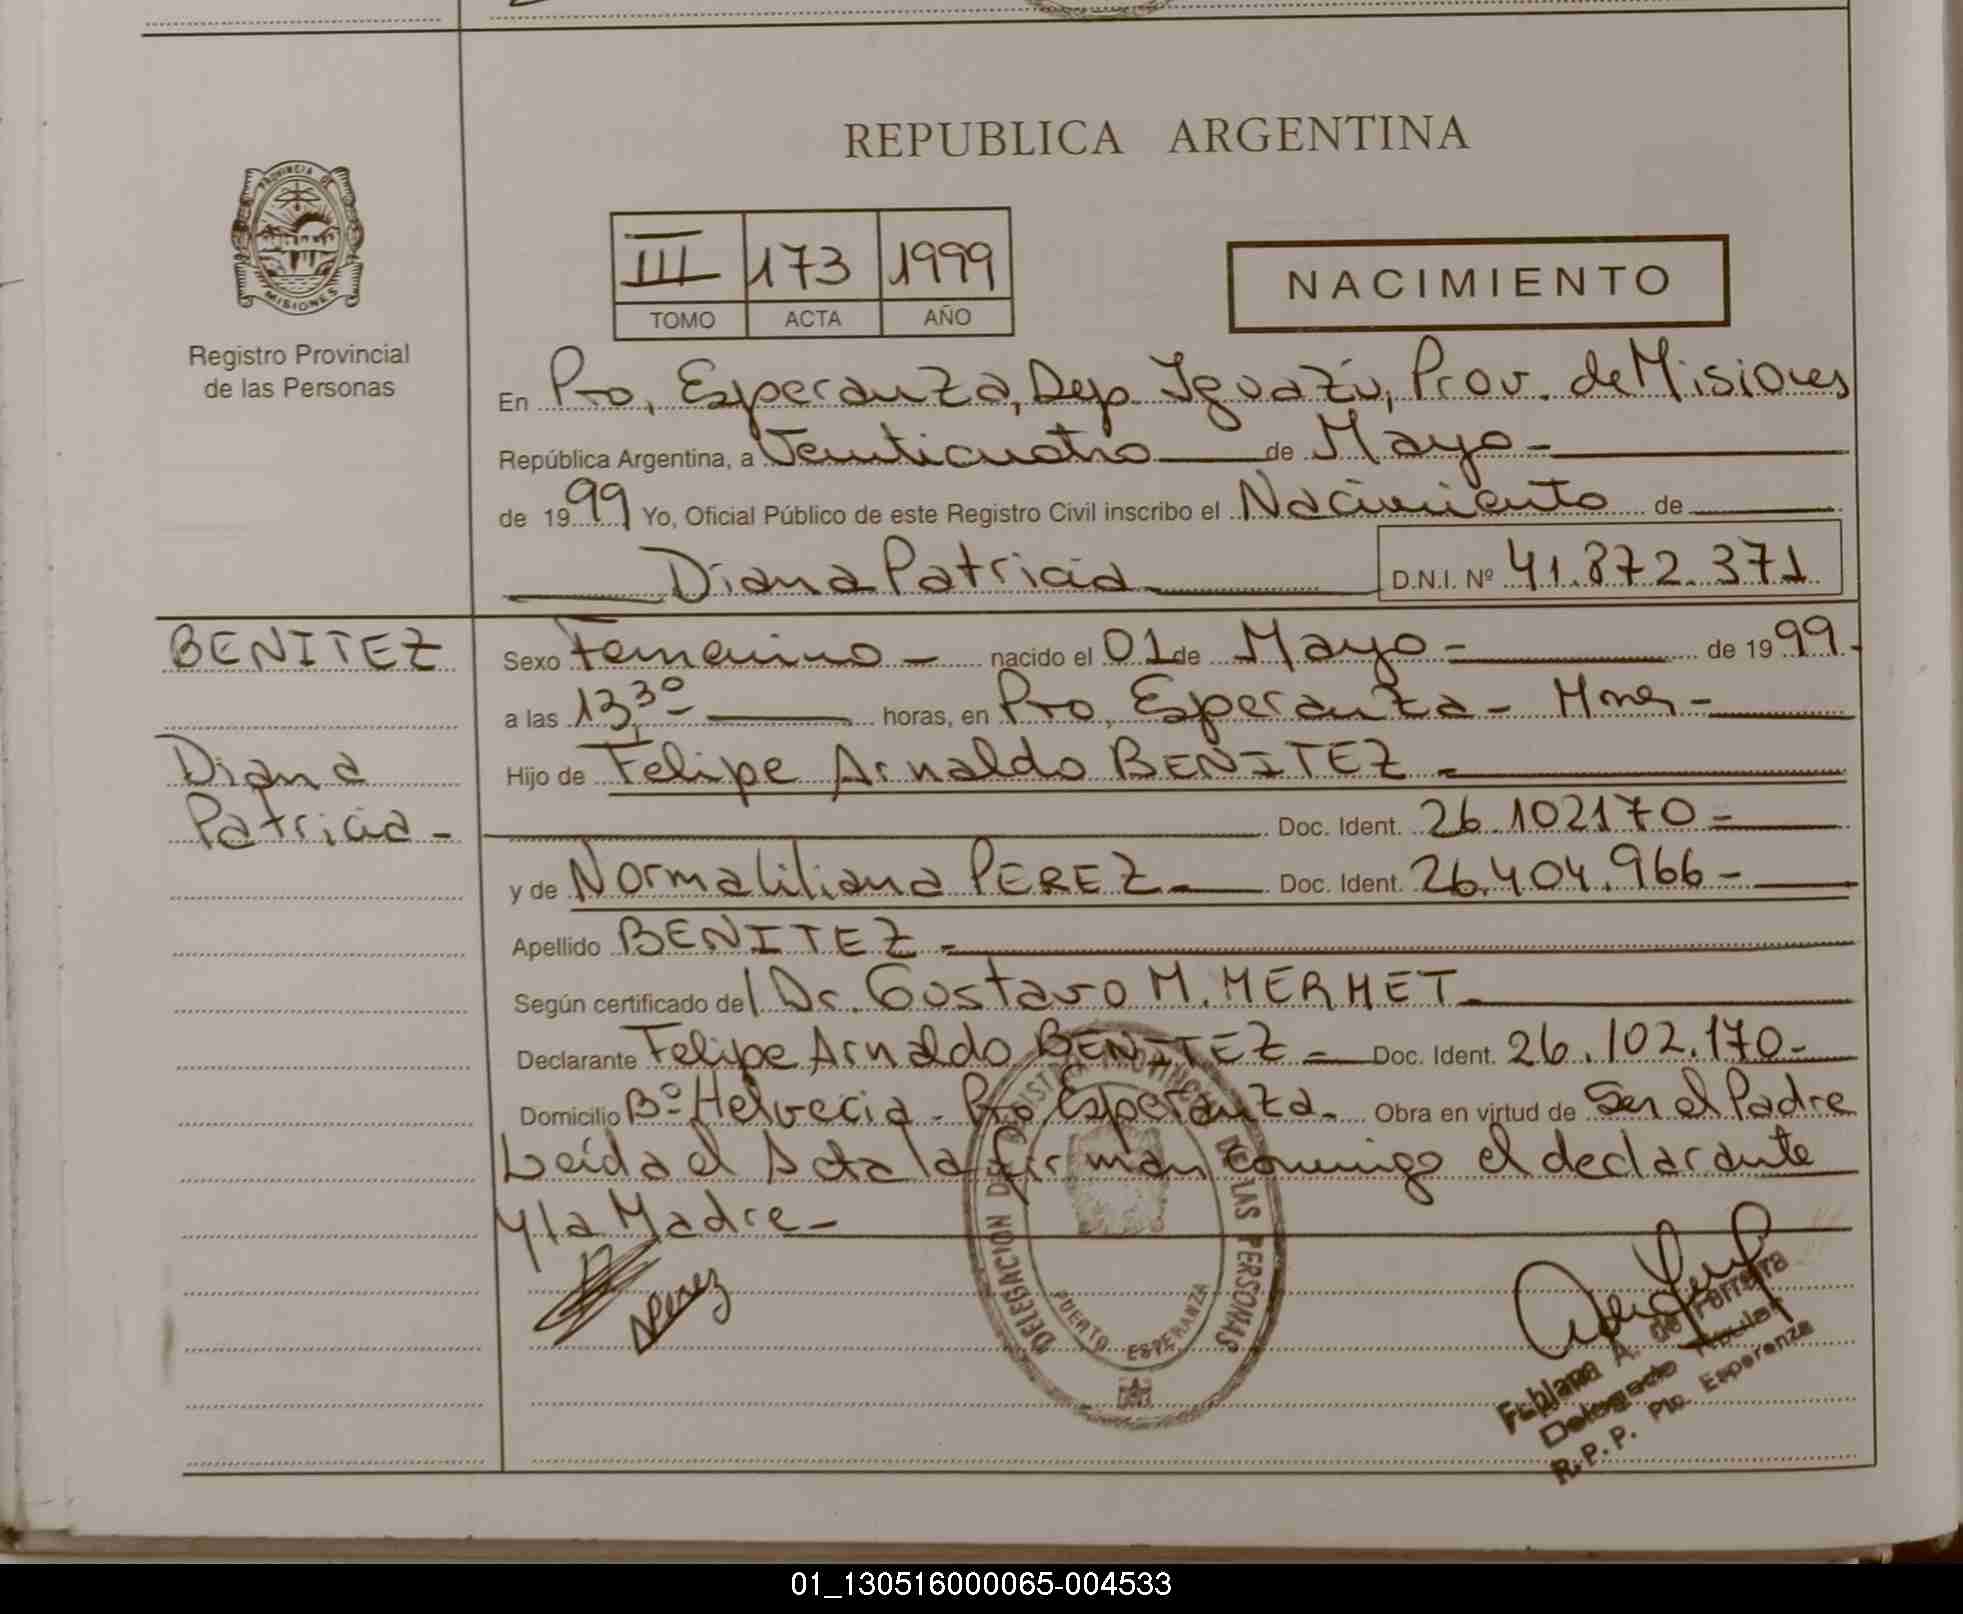 REPUBLICA ARGENTINA
PROVINCIA DE MISIONES
Registro Provincial
de las Personas
III 173 1999
TOMO ACTA AÑO
NACIMIENTO
En Pto, Esperanza, Dep. Iguazú, Prov. de Misiones
República Argentina, a Venticuatro de Mayo
de 1999 Yo, Oficial Público de este Registro Civil inscribo el Nacimiento de
Diana Patricia D.N.I. Nº 41.872.371
BENITEZ
Diana
Patricia
Sexo Femenino nacido el 01 de Mayo de 1999
a las 13,30 horas, en Pto, Esperanza - Mnes
Hijo de Felipe Arnaldo BENITEZ
Doc. Ident. 26.102170
y de Norma Liliana PEREZ Doc. Ident. 26.404.966
Apellido BENITEZ
Según certificado del Dr. Gustavo M. MERMET
Declarante Felipe Arnaldo BENITEZ Doc. Ident. 26.102.170
Domicilio Bº Helvecia - Pto, Esperanza. Obra en virtud de Ser el Padre
Leída el Acta la firman conmigo el declarante
y la Madre
NPerez
DELEGACION DEL REGISTRO PROVINCIAL DE LAS PERSONAS
PUERTO ESPERANZA
Fabiana A. de Ferreira
Delegado Titular
R.P.P. Pto. Esperanza
01_130516000065-004533